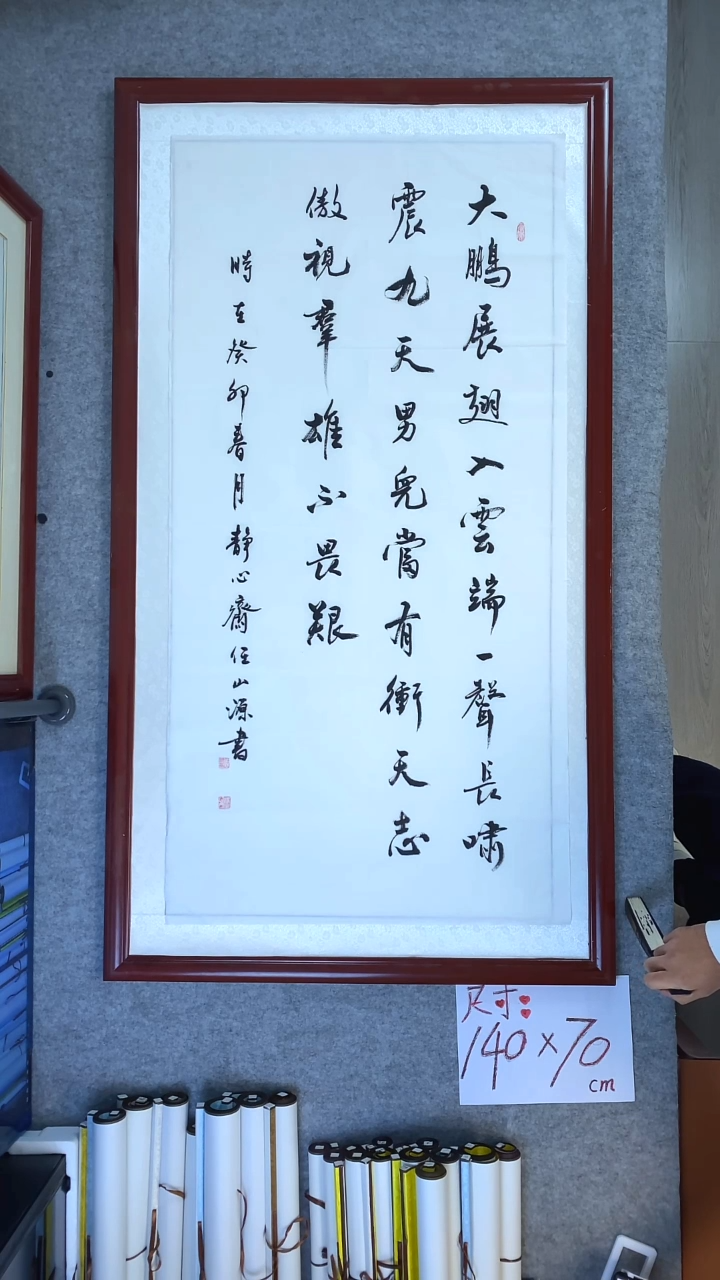 大鵬展翅入雲端一聲長嘯
震九天男兒當有衝天志
傲視羣雄不畏艱
時在癸卯春月靜心齋任山源書
尺寸:
140×70
cm